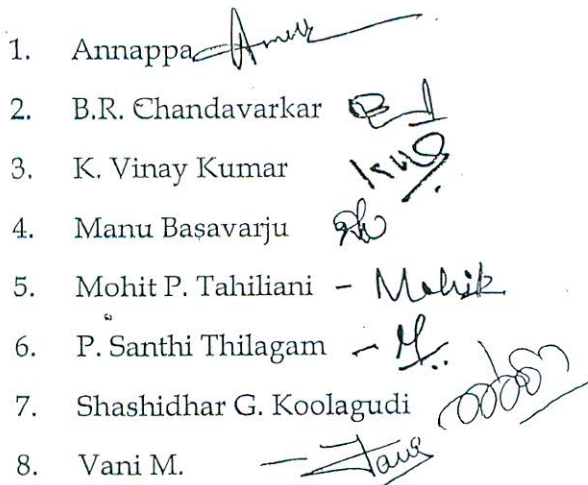 1. Annappa
2. B.R. Chandavarkar
3. K. Vinay Kumar
4. Manu Basavarju
5. Mohit P. Tahiliani - Mohit
6. P. Santhi Thilagam -
7. Shashidhar G. Koolagudi
8. Vani M. -